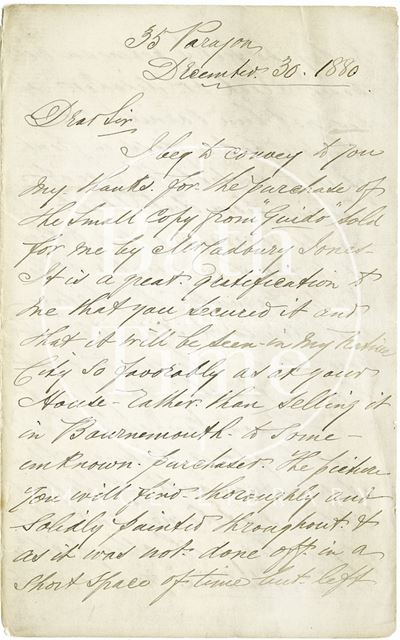 35 Paragon
December. 30. 1880
Dear Sir
I beg to convey to you
my thanks. for the purchase of
the small Copy from "Guido" sold
for me by Mr Cadbury Jones -
It is a great gratification to
me that you secured it and
that it will be seen - in my native
City so favorably as at your
House - rather than selling it
in Bournemouth - to some -
unknown purchaser. The picture
you will find - thoroughly and
solidly painted throughout. &
as it was not done off. in a
short space of time but left
Bath
in
Time